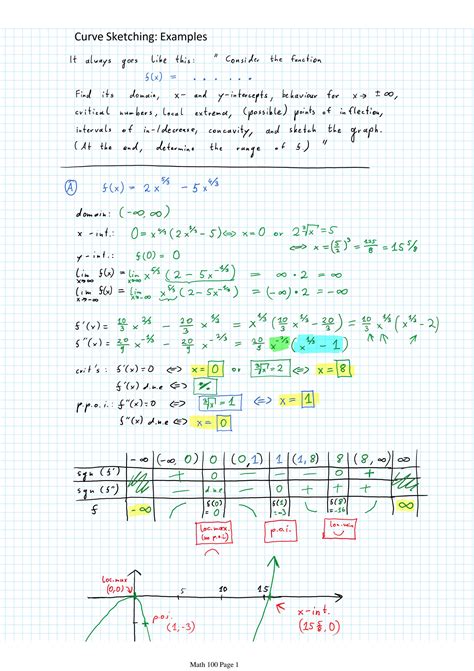 Curve Sketching: Examples
It always goes like this: " Consider the function
f(x) = . . . . . .
Find its domain, x- and y-intercepts, behaviour for x → ±∞,
critical numbers, local extrema, (possible) points of inflection,
intervals of in-/decrease, concavity, and sketch the graph.
(At the end, determine the range of f) "
Ⓐ f(x) = 2x^{5/3} - 5x^{4/3}
domain: (-∞, ∞)
x-int.: 0 = x^{4/3}(2x^{1/3} - 5) ⟺ x = 0 or 2∛x = 5
⟺ x = (5/2)^3 = 125/8 = 15 5/8
y-int.: f(0) = 0
lim x→∞ f(x) = lim x→∞ x^{5/3}(2 - 5x^{-1/3}) = ∞ · 2 = ∞
lim x→-∞ f(x) = lim x→-∞ x^{5/3}(2 - 5x^{-1/3}) = (-∞) · 2 = -∞
f'(x) = 10/3 x^{2/3} - 20/3 x^{1/3} = x^{1/3}(10/3 x^{1/3} - 20/3) = 10/3 x^{1/3}(x^{1/3} - 2)
f''(x) = 20/9 x^{-1/3} - 20/9 x^{-2/3} = 20/9 x^{-2/3}(x^{1/3} - 1)
crit's: f'(x) = 0 ⟺ x = 0 or ∛x = 2 ⟺ x = 8
f'(x) d.n.e ⟺
p.p.o.i.: f''(x) = 0 ⟺ ∛x = 1 ⟺ x = 1
f''(x) d.n.e ⟺ x = 0
-∞ (-∞, 0) 0 (0, 1) 1 (1, 8) 8 (8, ∞) ∞
sgn (f') + 0 - - - 0 +
sgn (f'') - d.n.e - 0 + + +
f -∞ f(0) = 0 f(1) = -3 f(8) = -16 ∞
loc.max. p.o.i. loc.min
loc.max
(0,0) 5 10 15
p.o.i. x-int.
(1,-3) (15 5/8, 0)
Math 100 Page 1